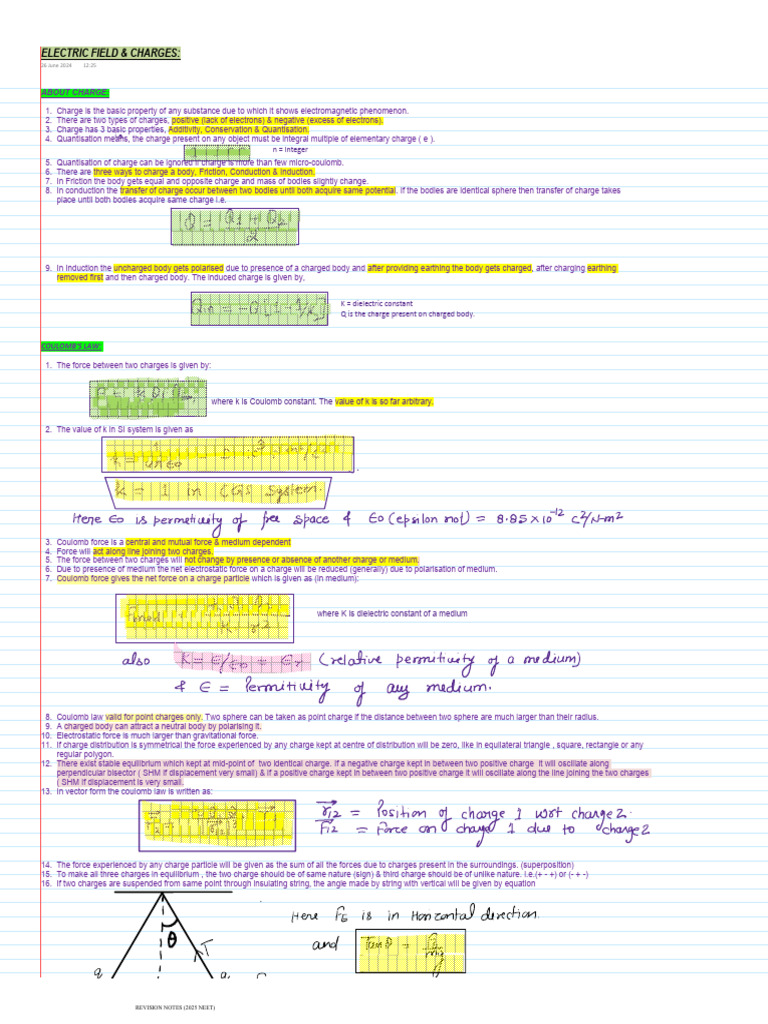 ELECTRIC FIELD & CHARGES:
26 June 2024 12:25
ABOUT CHARGE:
1. Charge is the basic property of any substance due to which it shows electromagnetic phenomenon.
2. There are two types of charges, positive (lack of electrons) & negative (excess of electrons).
3. Charge has 3 basic properties, Additivity, Conservation & Quantisation.
4. Quantisation means, the charge present on any object must be integral multiple of elementary charge ( e ).
n = integer
5. Quantisation of charge can be ignored if charge is more than few micro-coulomb.
6. There are three ways to charge a body, Friction, Conduction & Induction.
7. In Friction the body gets equal and opposite charge and mass of bodies slightly change.
8. In conduction the transfer of charge occur between two bodies until both acquire same potential. If the bodies are identical sphere then transfer of charge takes
place until both bodies acquire same charge i.e.
Q = Q1 + Q2 / 2
9. In Induction the uncharged body gets polarised due to presence of a charged body and after providing earthing the body gets charged, after charging earthing
removed first and then charged body. The induced charge is given by,
Qin = -Q[1 - 1/K]
K = dielectric constant
Q is the charge present on charged body.
COULOMB'S LAW:
1. The force between two charges is given by:
where k is Coulomb constant. The value of k is so far arbitrary.
2. The value of k in SI system is given as
K = 1 in CGS System.
Here ε0 is permetivity of free space & ε0 (epsilon not) = 8.85 × 10⁻¹² C²/N-m²
3. Coulomb force is a central and mutual force & medium dependent
4. Force will act along line joining two charges.
5. The force between two charges will not change by presence or absence of another charge or medium.
6. Due to presence of medium the net electrostatic force on a charge will be reduced (generally) due to polarisation of medium.
7. Coulomb force gives the net force on a charge particle which is given as (in medium):
where K is dielectric constant of a medium
also K = ε/ε0 = εr (relative permitivity of a medium)
& ε = Permitivity of any medium.
8. Coulomb law valid for point charges only. Two sphere can be taken as point charge if the distance between two sphere are much larger than their radius.
9. A charged body can attract a neutral body by polarising it.
10. Electrostatic force is much larger than gravitational force.
11. If charge distribution is symmetrical the force experienced by any charge kept at centre of distribution will be zero, like in equilateral triangle , square, rectangle or any
regular polygon.
12. There exist stable equilibrium which kept at mid-point of two identical charge. If a negative charge kept in between two positive charge it will oscillate along
perpendicular bisector ( SHM if displacement very small) & if a positive charge kept in between two positive charge it will oscillate along the line joining the two charges
( SHM if displacement is very small.
13. In vector form the coulomb law is written as:
r12 = Position of charge 1 wrt charge 2.
F12 = Force on charge 1 due to charge 2
14. The force experienced by any charge particle will be given as the sum of all the forces due to charges present in the surroundings. (superposition)
15. To make all three charges in equilibrium , the two charge should be of same nature (sign) & third charge should be of unlike nature. i.e.(+ - +) or (- + -)
16. If two charges are suspended from same point through insulating string, the angle made by string with vertical will be given by equation
Here FE is in Horizontal direction.
θ T and
q
REVISION NOTES (2025 NEET)